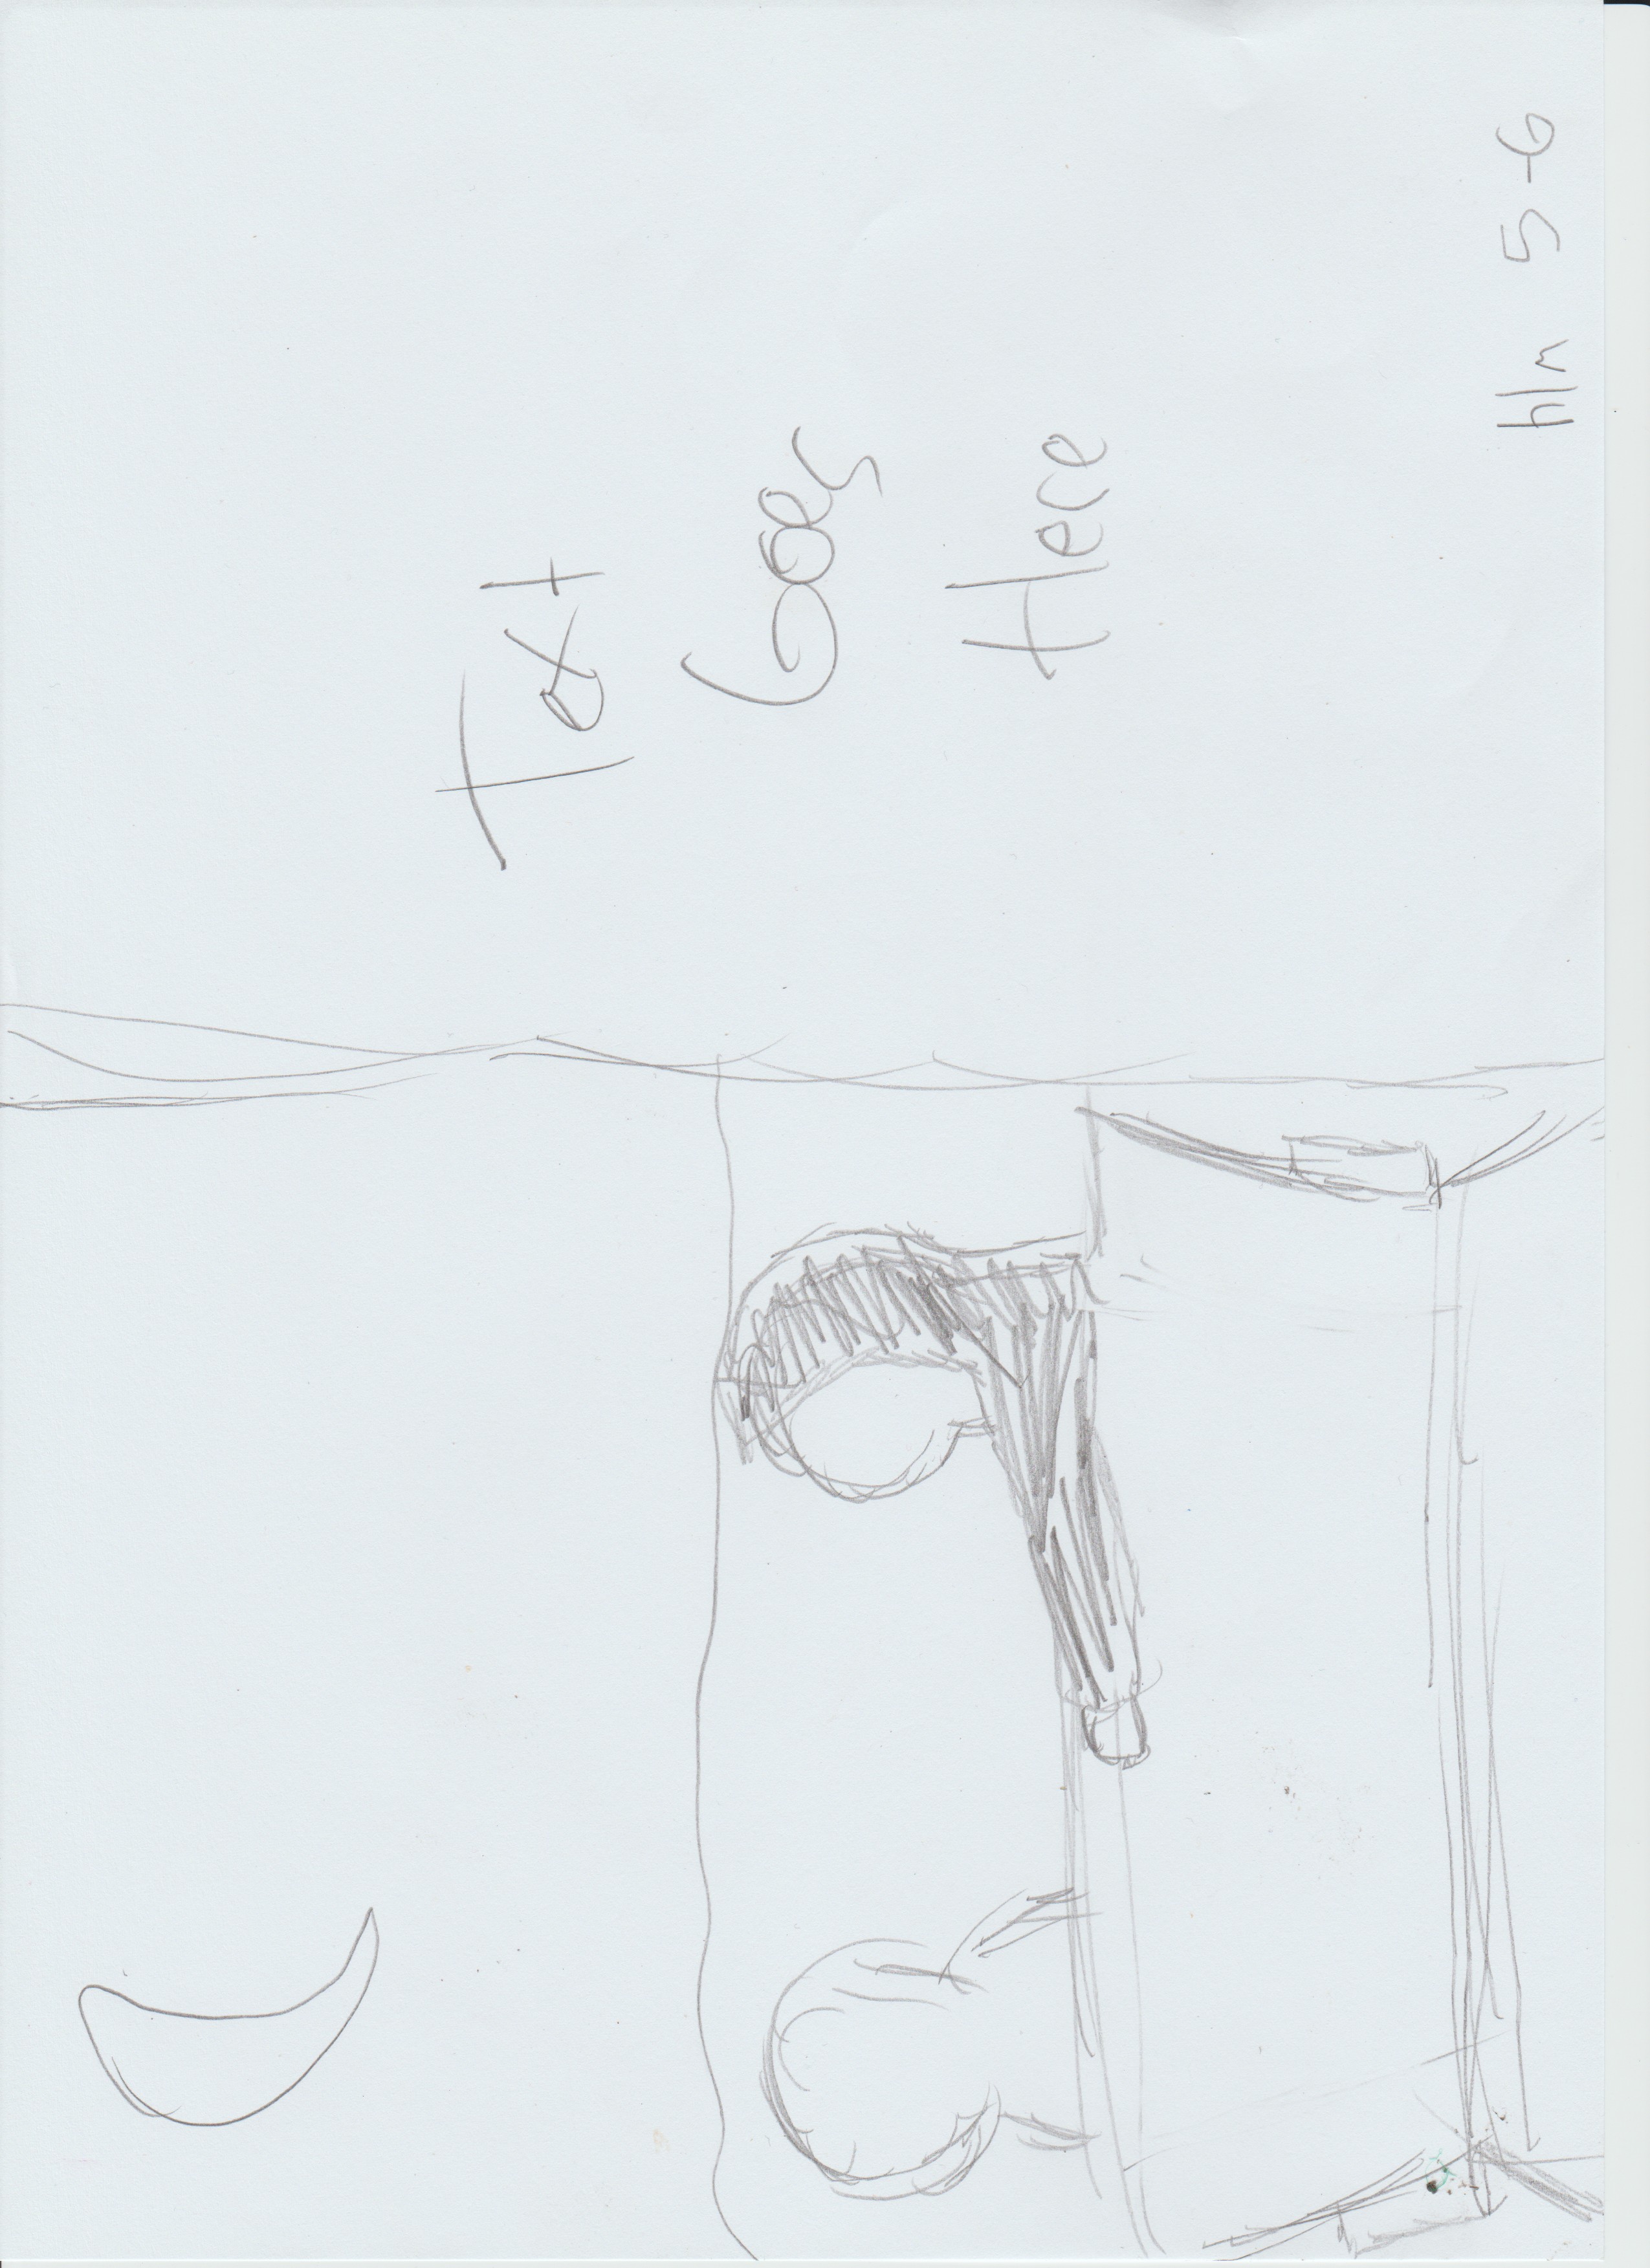 Text
Goes
Here
hlm 5-6